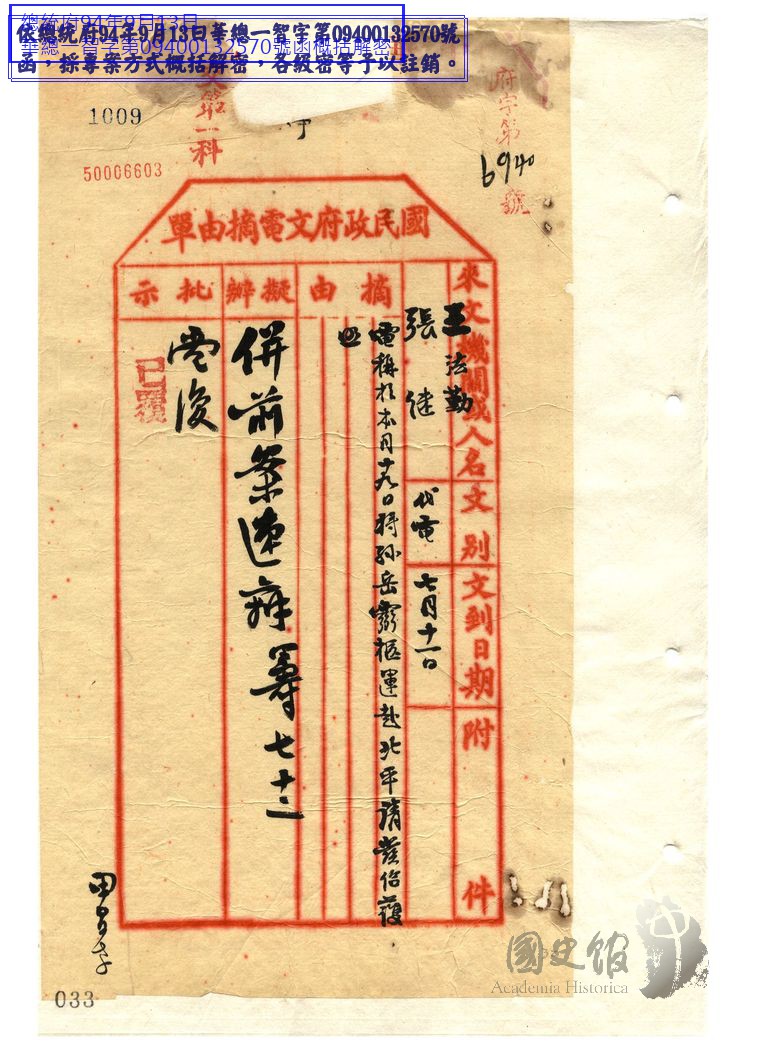 總統府94年9月13日
華總一智字第09400132570號函概括解密
依總統府94年9月13日華總一智字第09400132570號
函，採專案方式概括解密，各級密等予以註銷。
府字第
6940
號
文第一科
1009
50006603
國民政府文電摘由單
來文機關或人名
王法勤
張繼
文別
代電
文到日期
七月十一日
附件
摘由
電稱於本月十九日將孫岳靈柩運赴北平請發給護
照
擬辦
併前案速辦
七十二
批示
電復
已覆
033
國史館
Academia Historica